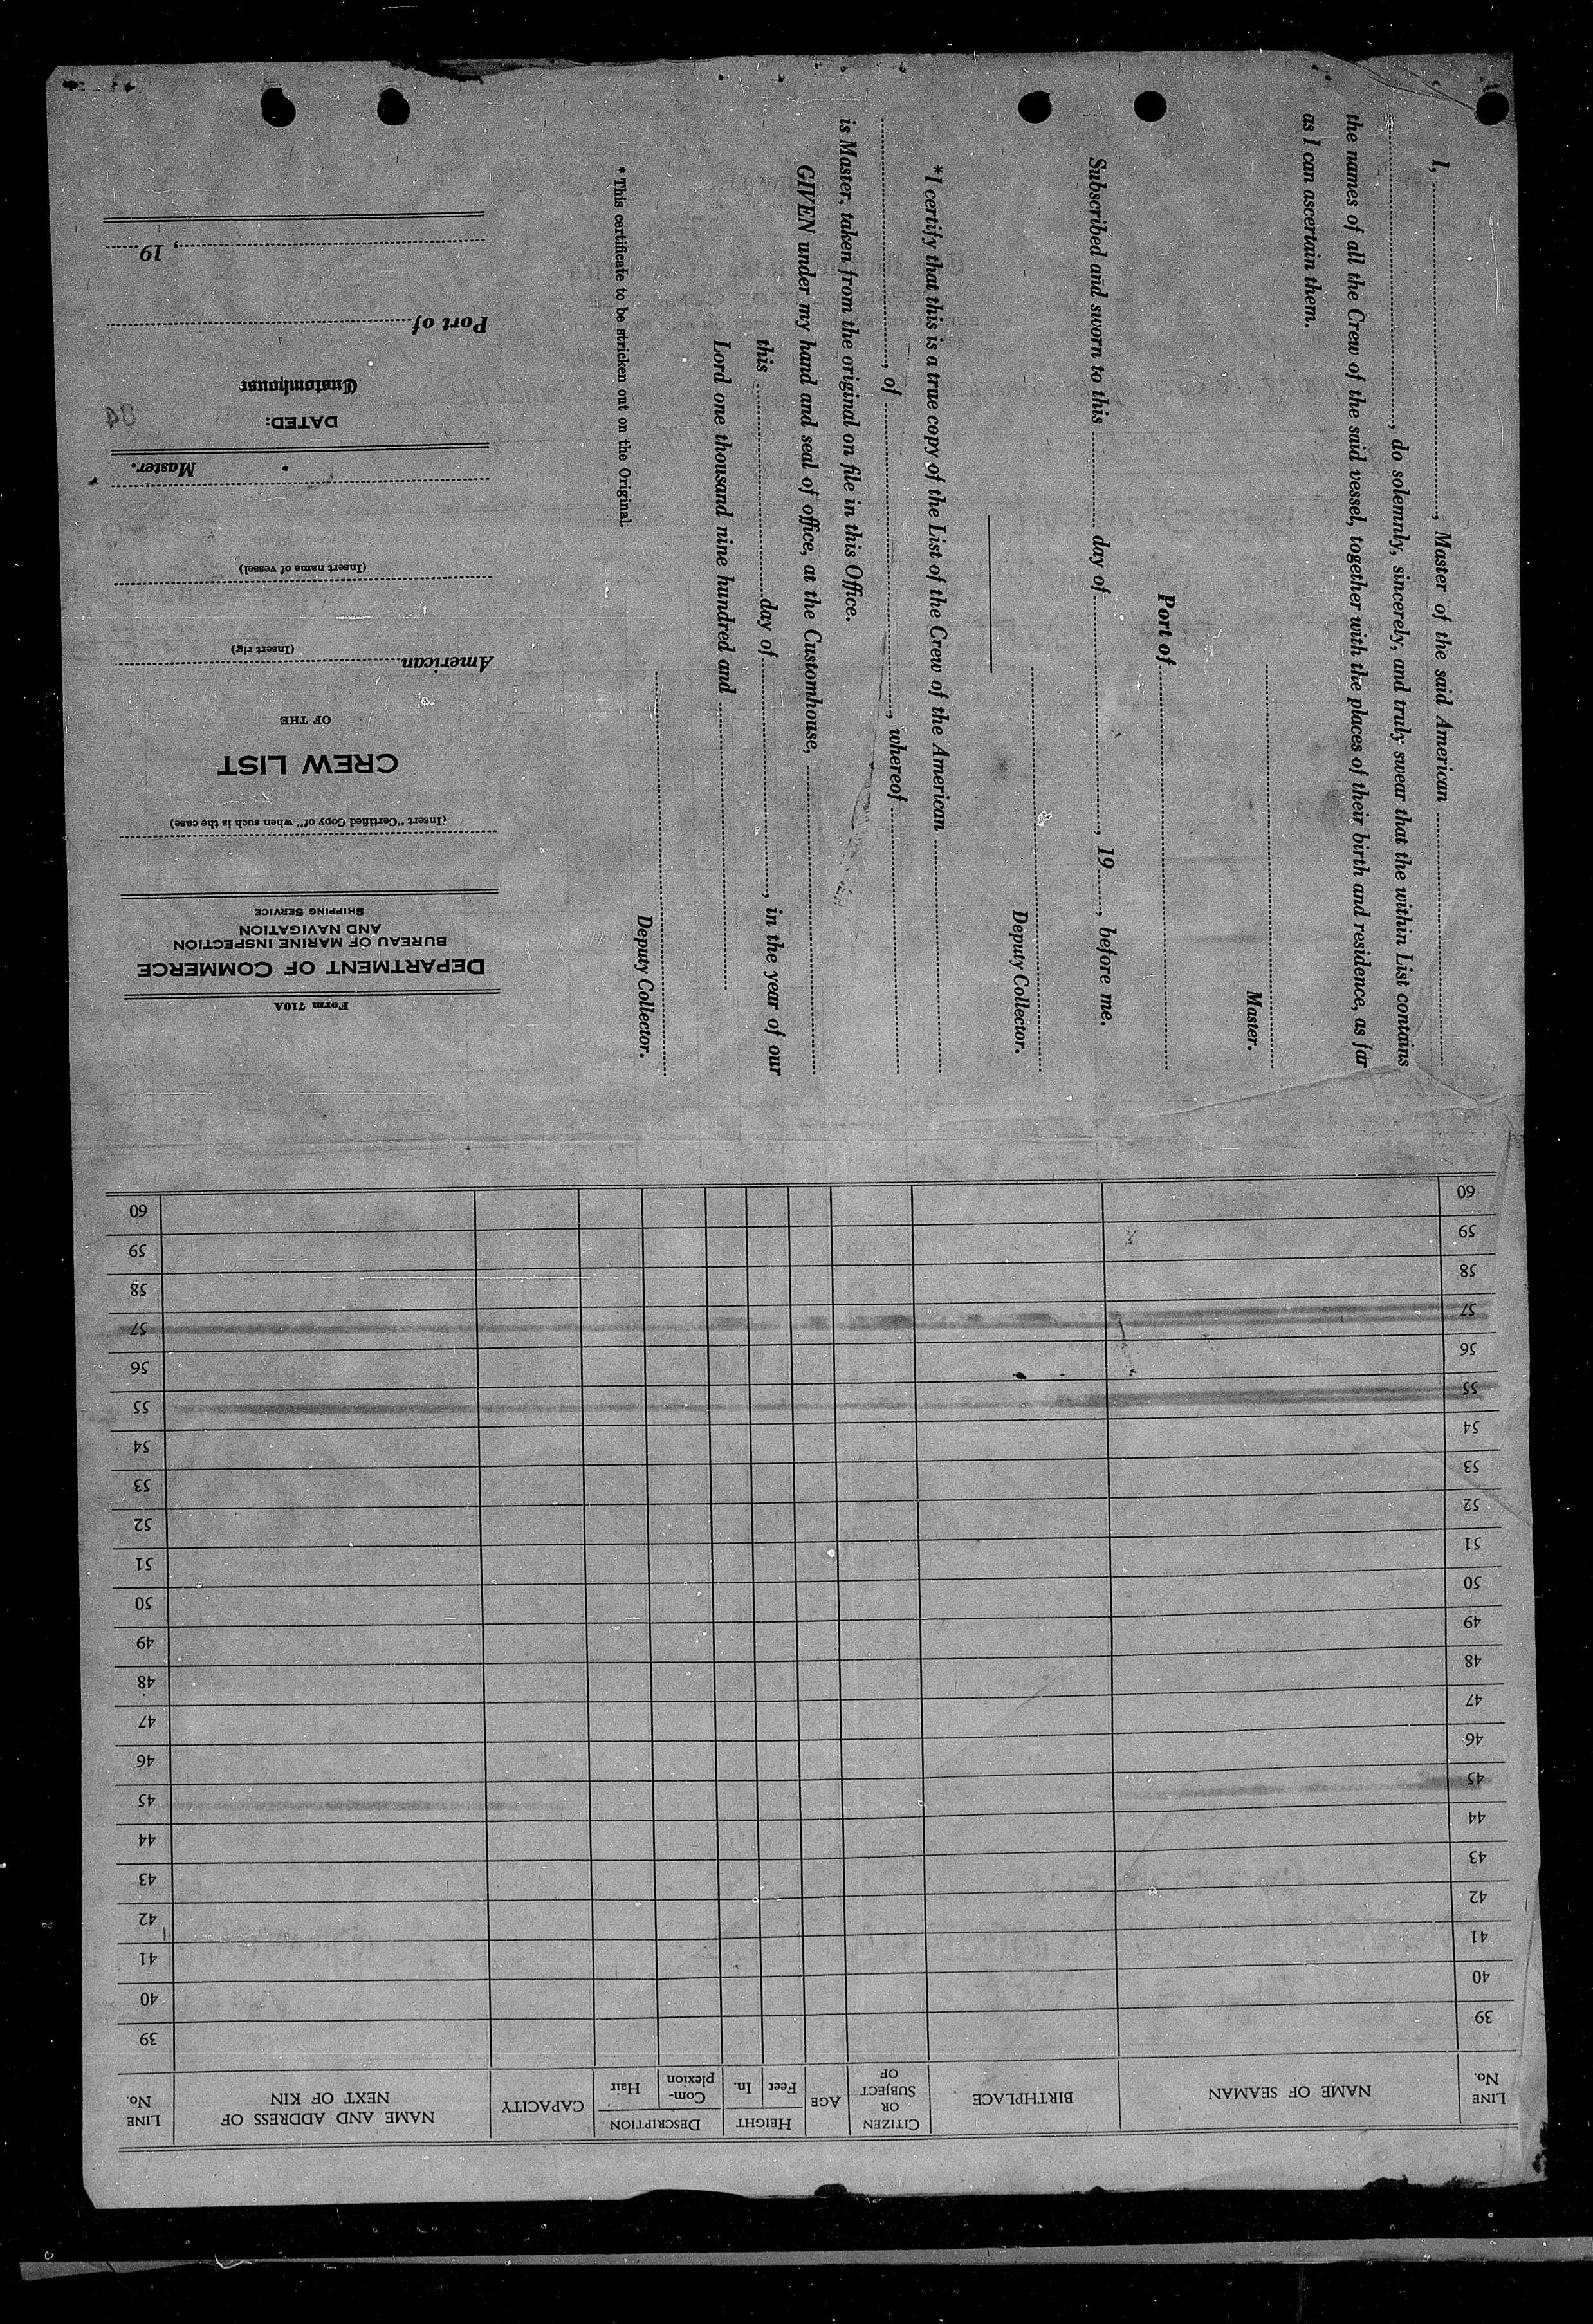 LINE No.	NAME OF SEAMAN	BIRTHPLACE	CITIZEN OR SUBJECT OF	AGE	HEIGHT Feet In.	DESCRIPTION Com-plexion Hair	CAPACITY	NAME AND ADDRESS OF NEXT OF KIN	LINE No.
39	39
40	40
41	41
42	42
43	43
44	44
45	45
46	46
47	47
48	48
49	49
50	50
51	51
52	52
53	53
54	54
55	55
56	56
57	57
58	58
59	59
60	60
Form 710A
DEPARTMENT OF COMMERCE
BUREAU OF MARINE INSPECTION
AND NAVIGATION
SHIPPING SERVICE
(Insert "Certified Copy of" when such is the case)
CREW LIST
OF THE
American
(Insert rig)
(Insert name of vessel)
Master.
DATED:
Customhouse
Port of
, 19
84
I, , Master of the said American
, do solemnly, sincerely, and truly swear that the within List contains
the names of all the Crew of the said vessel, together with the places of their birth and residence, as far
as I can ascertain them.
Master.
Port of
Subscribed and sworn to this day of , 19 , before me.
Deputy Collector.
*I certify that this is a true copy of the List of the Crew of the American
, of , whereof
is Master, taken from the original on file in this Office.
GIVEN under my hand and seal of office, at the Customhouse,
this day of , in the year of our
Lord one thousand nine hundred and
Deputy Collector.
* This certificate to be stricken out on the Original.